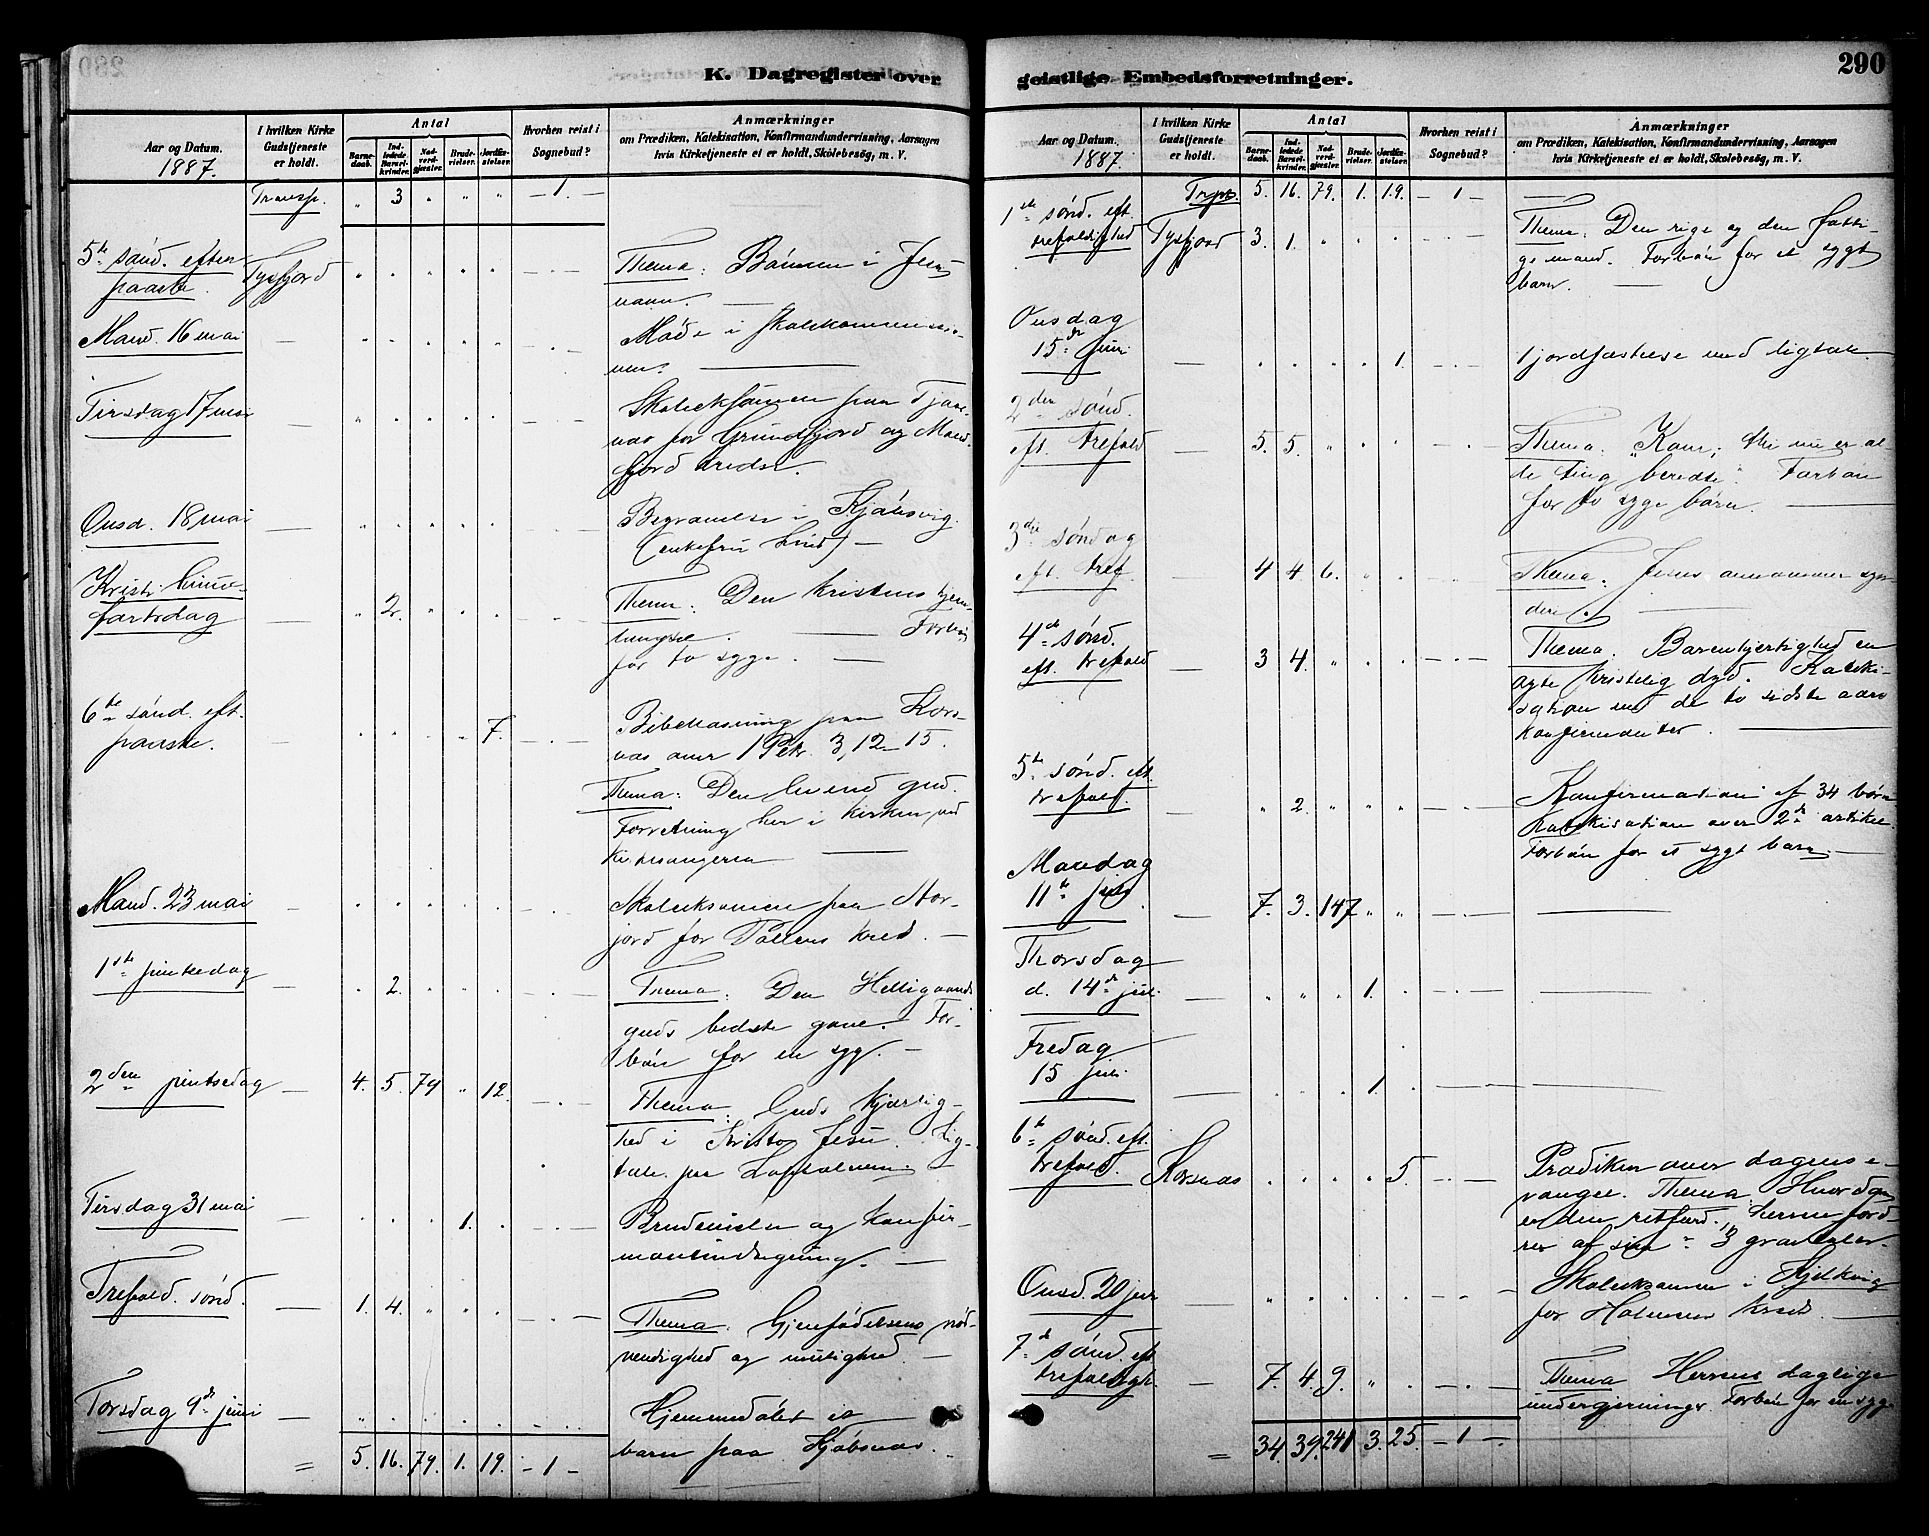 K. Dagregister over
Aar og Datum.
1887.
I hvilken Kirke
Gudstjeneste
er holdt.
Antal
Barne-
daab.
Ind-
ledede
Barsel-
kvinder.
Nad-
verd-
gjæster.
Brude-
vielser.
Jordfæ-
stelser.
Hvorhen reist i
Sognebud?
Anmærkninger
om Prædiken, Katekisation, Konfirmandundervisning, Aarsagen
hvis Kirketjeneste ei er holdt, Skolebesøg, m. V.
Transp. " 3 " " " - 1. -
5te sønd. efter
paaske. Tysfjord
Thema: Bønnen i Jesu
navn.
Mand. 16 mai
Møde i skolekommissio-
nen.
Tirsdag 17 mai
Skoleeksamen paa Tjøre-
nas for Grundfjord og Mand-
fjord kreds.
Onsd. 18 mai
Begravelse i Kjøbsvig.
(enkefru Lund) —
Kristi himmel-
fartsdag 2.
Thema: Den kristens hjem-
længsel. Forbøn
for to syge.
6te sønd. eft.
paaske. 7.
Bibellæsning paa Kors-
næs over 1 Petr. 3, 12–15.
Thema: Den levende gud.
Forretning her i Kirken ved
Kirkesangeren
Mand. 23 mai
Skoleeksamen paa Nor-
jord for Pollens kreds.
1ste pintsedag 2.
Thema: Den Helligaand
guds bedste gave. For-
bøn for en syg.
2den pintsedag 4. 5. 79 " 12.
Thema: Guds kjærlig-
hed i Kristo Jesu. Lig-
tale paa
Tirsdag 31 mai 1.
Brudevielse og konfir-
mantindtegning.
Trefold. sønd. 1. 4. " "
Thema: Gjenfødelsens nød-
vendighed og mulighed.
Torsdag 9de juni
Hjemmedøbt et
barn paa Kjøbsnæs.
= 5. 16. 79. 1. 19. - 1 -
geistlige Embedsforretninger.
290
Aar og Datum.
1887.
I hvilken Kirke
Gudstjeneste
er holdt.
Antal
Barne-
daab.
Ind-
ledede
Barsel-
kvinder.
Nad-
verd-
gjæster.
Brude-
vielser.
Jordfæ-
stelser.
Hvorhen reist i
Sognebud?
Anmærkninger
om Prædiken, Katekisation, Konfirmandundervisning, Aarsagen
hvis Kirketjeneste ei er holdt, Skolebesøg, m. V.
Trspt. 5. 16. 79. 1. 19. - 1 -
1ste sønd. eft.
trefoldighed Tysfjord 3. 1.
Thema: Den rige og den fatti-
ge mand. Forbøn for et sygt
barn.
Onsdag
15de juni 1.
1 jordfæstelse med ligtale.
2den sønd.
eft. trefold 5. 5.
Thema: "Kom; thi nu er al-
de ting beredte". Forbøn
for to syge børn.
3die søndag
eft. tref. 4 4 6.
Thema: Jesus annammer syn-
dere.
4de sønd.
eft. trefold 3 4.
Thema: Barmhjertighed en
ægte kristelig dyd. Kateki-
sation med de to sidste aars
konfirmanter.
5te sønd. eft.
trefold. " 2.
Konfirmation af 34 børn
Katekisation over 2den artikel.
Forbøn for et sygt barn.
Mandag
11te juli 7. 3. 147 " "
Thorsdag
d. 14de juli 1.
Fredag
15 juli 1
6te sønd. eft.
trefold. Korsnæs 5.
Prædiken over dagens e-
vangel. Thema: Hvordan
er den retfærd, herren ford-
rer af sine 3 gravtaler.
Onsd. 20 juli
Skoleeksamen i Kjelkvig
for Holmens kreds
7de sønd. eft.
trefoldigh. 7. 4. 9. "
Thema Herrens daglige
undergjerninger. Forbøn for en syg.
= 34. 39. 241 3. 25. - 1 -